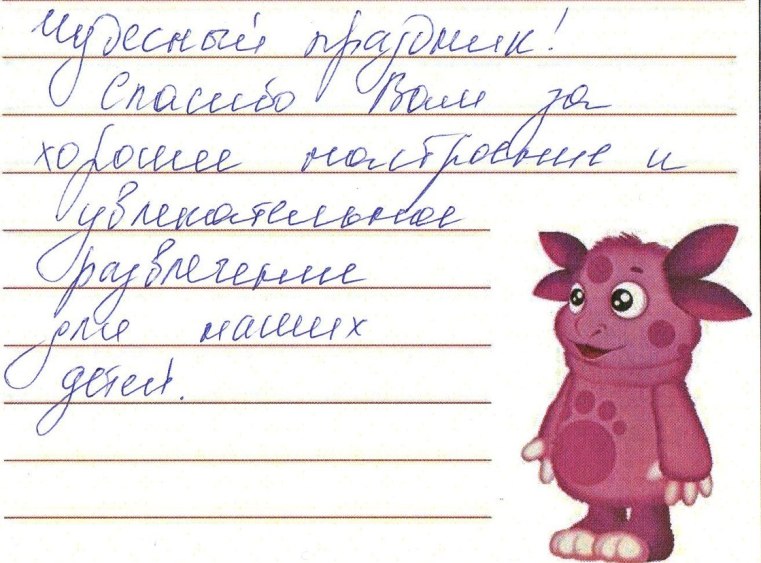 Чудесный праздник!
Спасибо Вам за
хорошее настроение и
увлекательное
развлечение
для наших
детей.